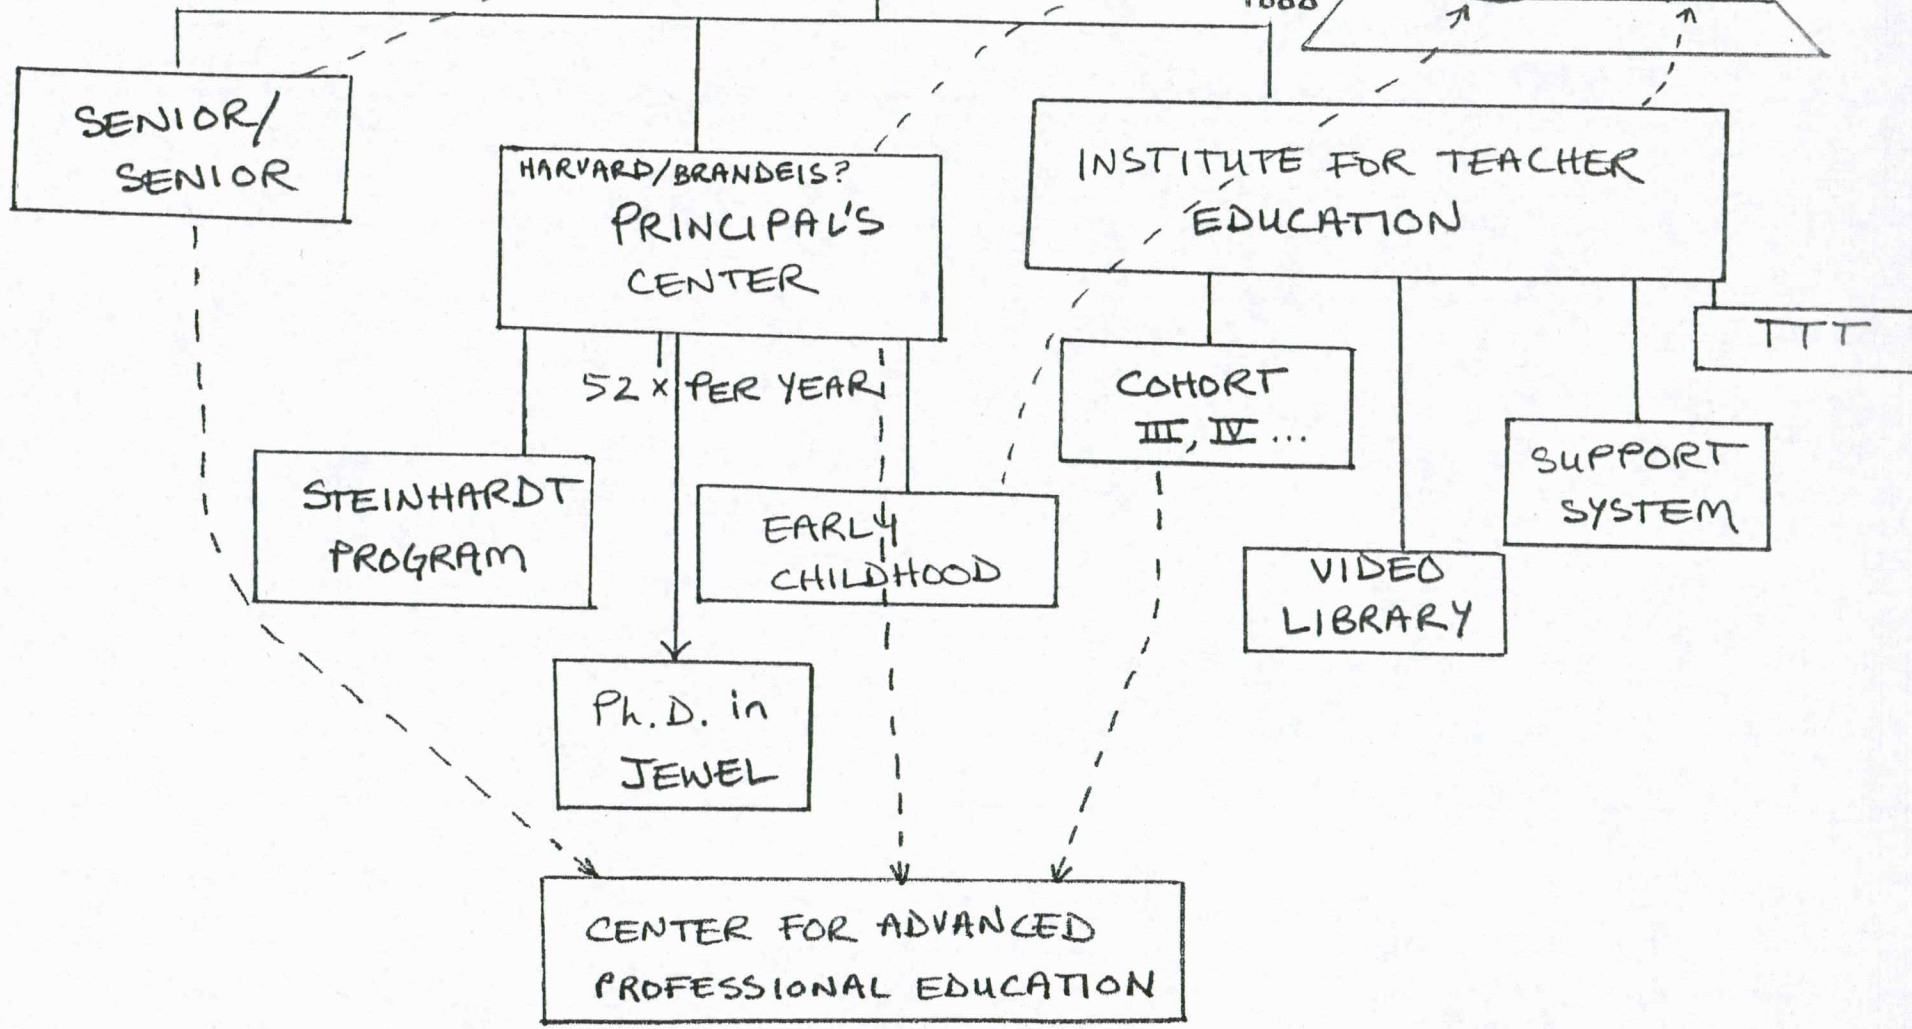 SENIOR/
SENIOR
HARVARD/BRANDEIS?
PRINCIPAL'S
CENTER
INSTITUTE FOR TEACHER
EDUCATION
TTT
52 x PER YEAR
COHORT
III, IV ...
SUPPORT
SYSTEM
STEINHARDT
PROGRAM
EARLY
CHILDHOOD
VIDEO
LIBRARY
Ph.D. in
JEWEL
CENTER FOR ADVANCED
PROFESSIONAL EDUCATION